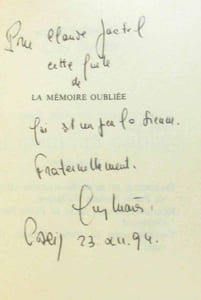 Pour Claude
cette quête
de
LA MÉMOIRE OUBLIÉE
qui est un peu la sienne.
Fraternellement.
23 XII. 94.